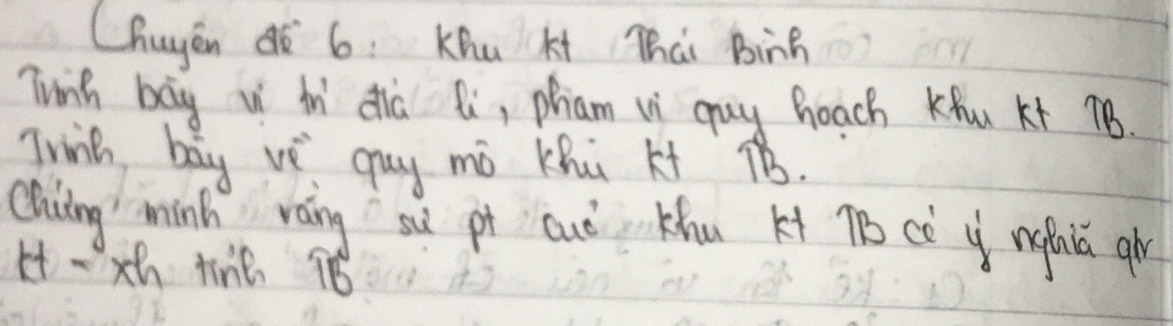 Chuyên đề 6: Khu kt Thái Bình
Trình bày vị trí địa lí, phạm vi quy hoạch khu kt TB.
Trình bày về quy mô khu kt TB.
Chứng minh rằng sự pt của khu kt TB có ý nghĩa qtr
kt - xh tỉnh TB